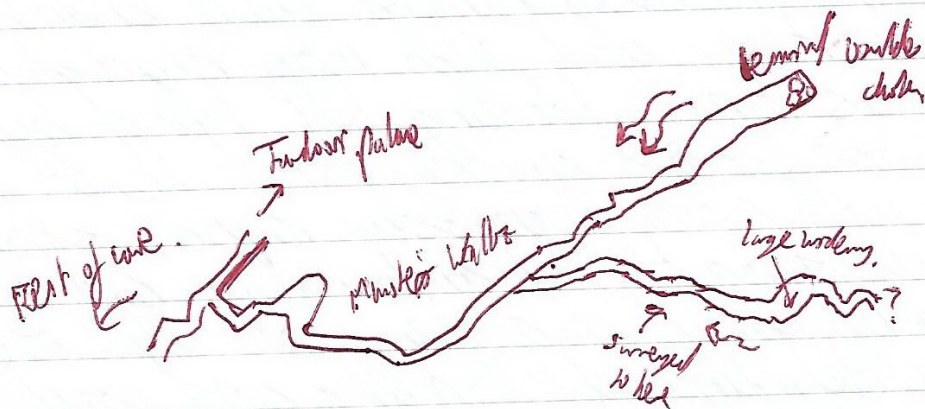 terminal boulder
choke
Tudor palace
Rest of cave.
Minster Waltz
large widening.
?
surveyed
to here